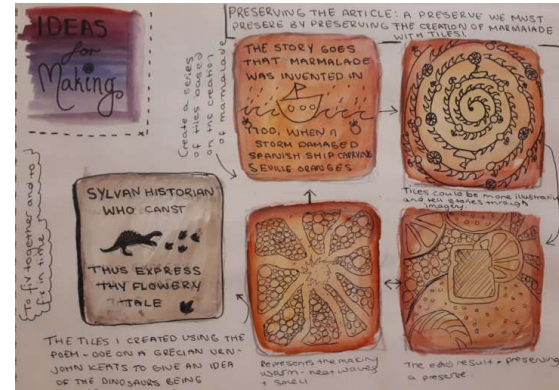 IDEAS
for
Making
PRESERVING THE ARTICLE: A PRESERVE WE MUST
PRESERE BY PRESERVING THE CREATION OF MARMALADE
WITH TILES!
Create a series
of tiles based
on the creation
of marmalade
THE STORY GOES
THAT MARMALADE
WAS INVENTED IN
1700, WHEN A
STORM DAMAGED
SPANISH SHIP CARRYING
SEVILLE ORANGES.
Tiles could be more illustrative
and tell stories through
imagery.
To fix together and to
fix in time
SYLVAN HISTORIAN
WHO CANST
THUS EXPRESS
THY FLOWERY
TALE
THE TILES I CREATED USING THE
POEM - ODE ON A GRECIAN URN -
JOHN KEATS TO GIVE AN IDEA
OF THE DINOSAURS BEING
Represents the making
warm - heat waves
+ smell
The end result - preserving
a preserve